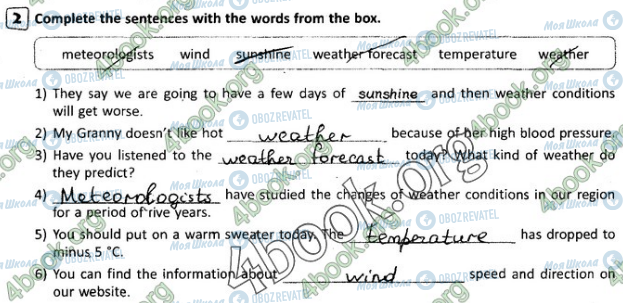 2 Complete the sentences with the words from the box.
meteorologists wind sunshine weather forecast temperature weather
1) They say we are going to have a few days of sunshine and then weather conditions
will get worse.
2) My Granny doesn't like hot weather because of her high blood pressure.
3) Have you listened to the weather forecast today? What kind of weather do
they predict?
4) Meteorologists have studied the changes of weather conditions in our region
for a period of five years.
5) You should put on a warm sweater today. The temperature has dropped to
minus 5 °C.
6) You can find the information about wind speed and direction on
our website.
4book.org
Моя Школа
OBOZREVATEL